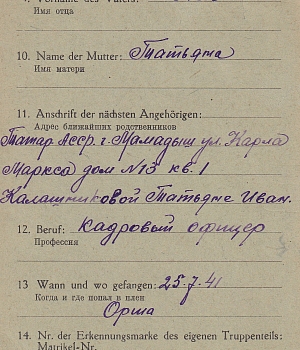 Имя отца
10. Name der Mutter: Татьяна
Имя матери
11. Anschrift der nächsten Angehörigen:
Адрес ближайших родственников
Татар Асср. г. Мамадыш ул. Карла
Маркса дом N13 кв. 1
Калашниковой Татьяне Иван.
12. Beruf: Кадровый офицер
Профессия
13 Wann und wo gefangen: 25.7.41
Когда и где попал в плен
Орша
14. Nr. der Erkennungsmarke des eigenen Truppenteils:
Matrikel-Nr.